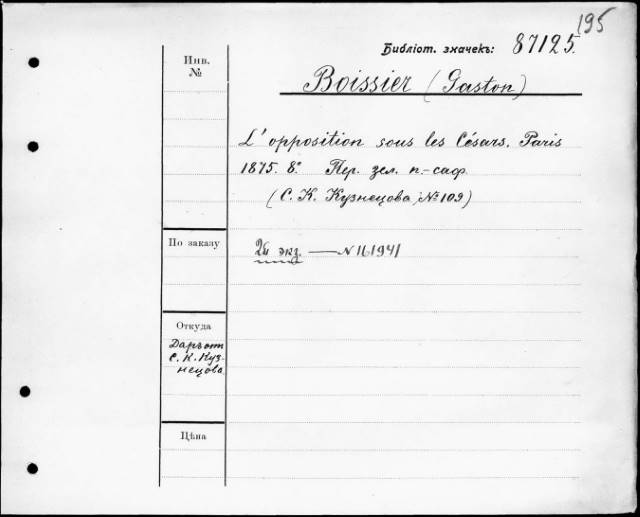 195
Библіот. значекъ: 87125.
Инв.
№
Boissier (Gaston)
L'opposition sous les Césars. Paris
1875. 8°. Пер. зел. п.-саф.
(С. К. Кузнецова, № 109)
По заказу
2й экз. — N 161941
Откуда
Даръ от
С. К. Куз-
нецова
Цѣна